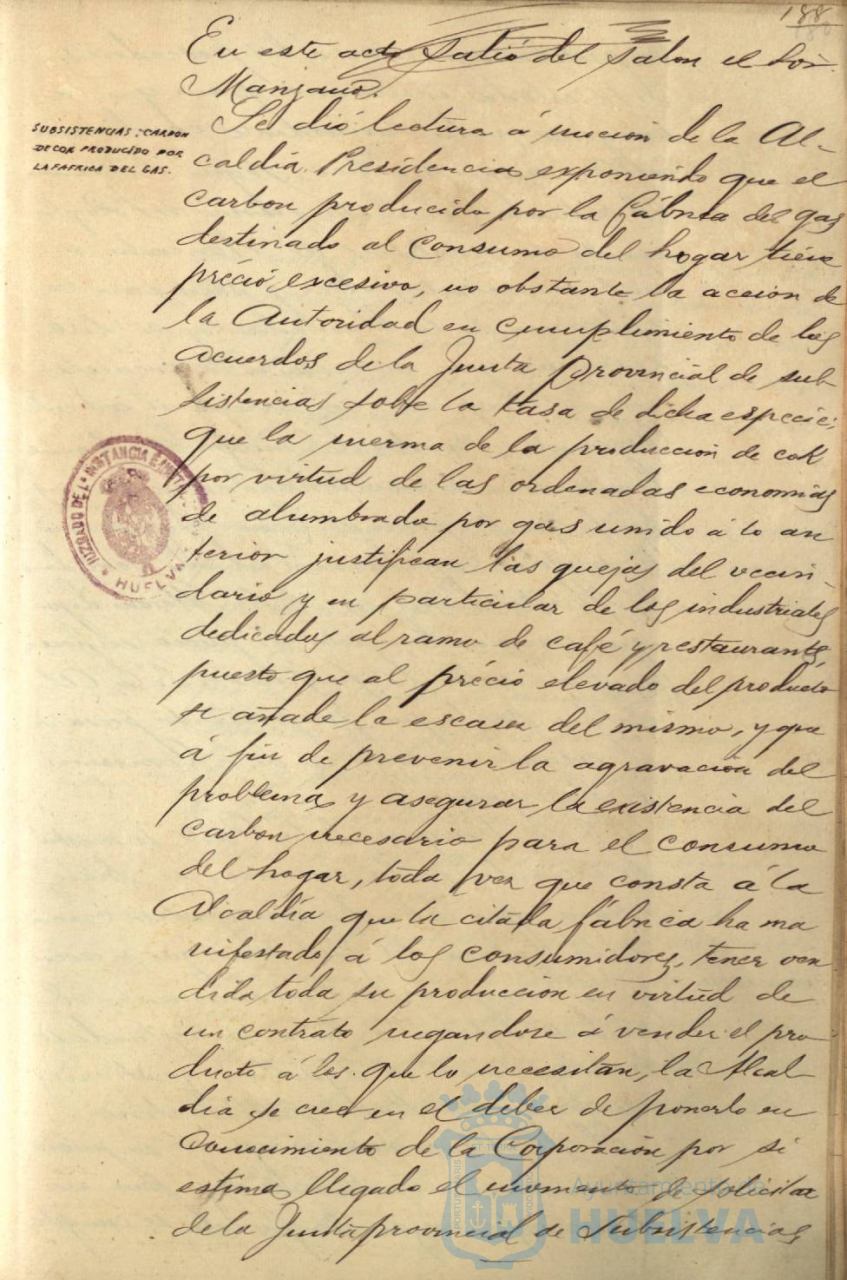 188
En este acto salió del salon el Sor.
Manzano.
SUBSISTENCIAS: CARBON
DE COK PRODUCIDO POR
LA FAFRICA DEL GAS.
Se dió lectura á mocion de la Al-
caldia Presidencia exponiendo que el
carbon producido por la fábrica del gas
destinado al consumo del hogar tiene
précio excesivo, no obstante la accion de
la Autoridad en cumplimiento de los
acuerdos de la Junta Provincial de sub-
sistencias sobre la tasa de dicha especie;
que la merma de la produccion de cok
por virtud de las ordenadas economias
de alumbrado por gas unido á lo an
terior justifican las quejas del vecin-
dario y en particular de los industriales
dedicados al ramo de café y restaurants,
puesto que al précio elevado del producto
se añade la escasez del mismo, y que
á fin de prevenir la agravacion del
problema y asegurar la existencia del
carbon necesario para el consumo
del hogar, toda vez que consta á la
Alcaldía que la citada fábrica ha ma
nifestado á los consumidores, tener ven
dida toda su produccion en virtud de
un contrato negandose á vender el pro-
ducto á los que lo necesitan, la Alcal
dia se cree en el deber de ponerlo en
conocimiento de la Corporacion por si
estima llegado el momento de solicitar
de la Junta provincial de Subsistencias
JUZGADO DE 1ª INSTANCIA E INSTRUC
HUELVA
Ayuntamiento de
HUELVA